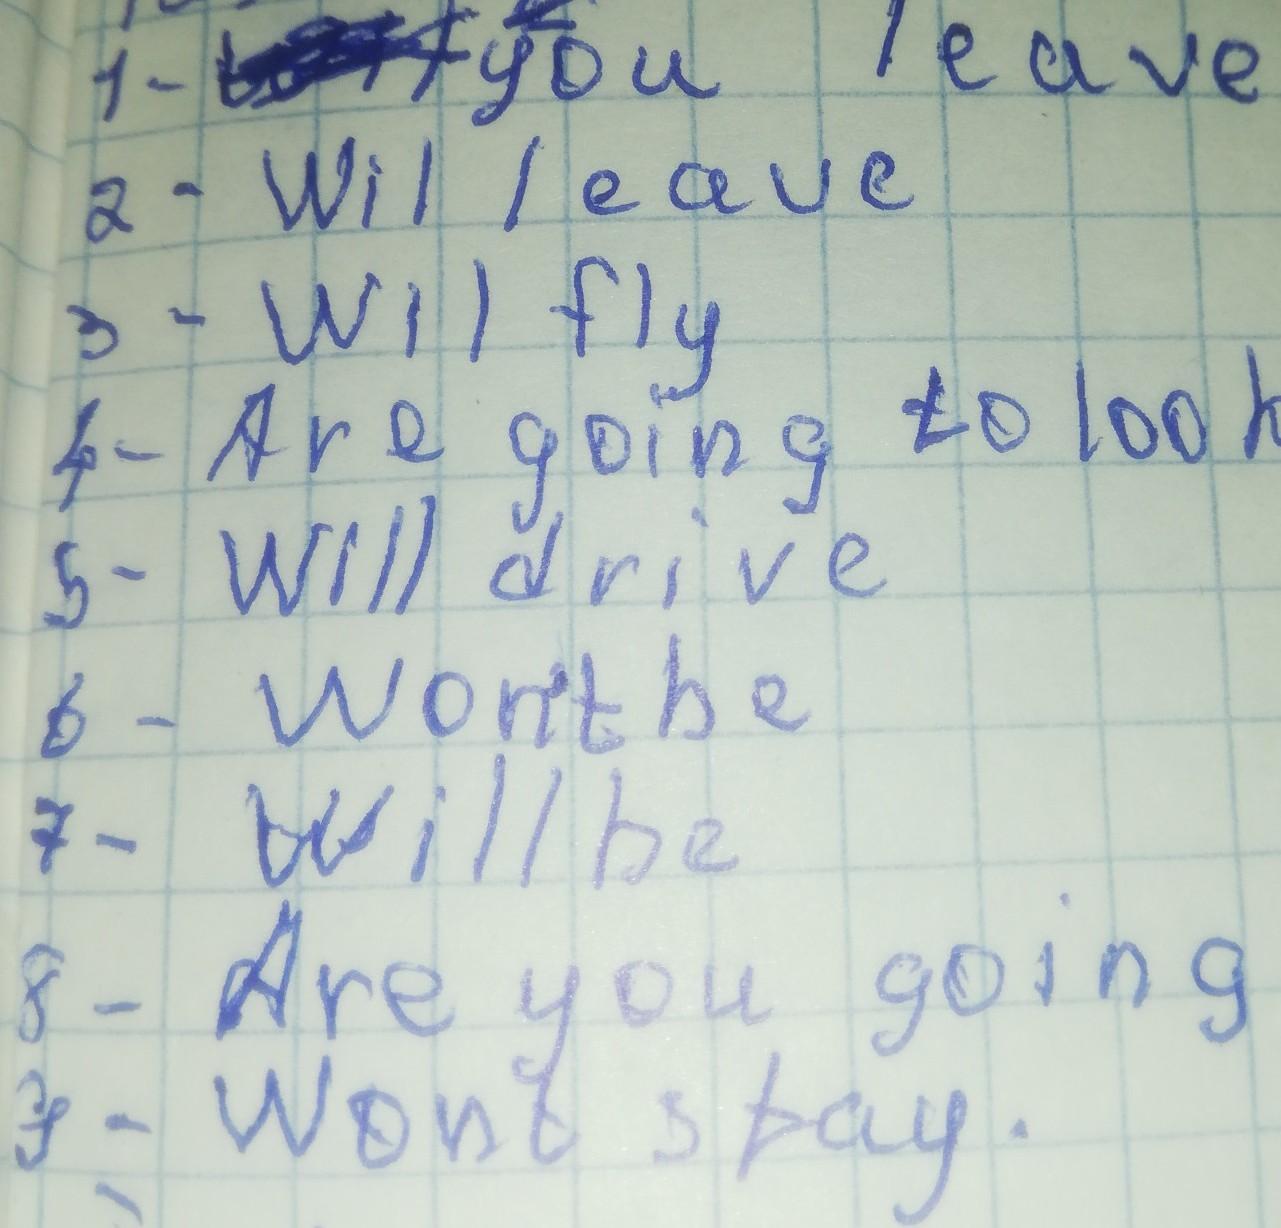 1- you leave
2 - Wil leave
3 - Will fly
4 - Are going to look
5 - Will drive
6 - Won't be
7 - Will be
8 - Are you going
9 - Wont stay.